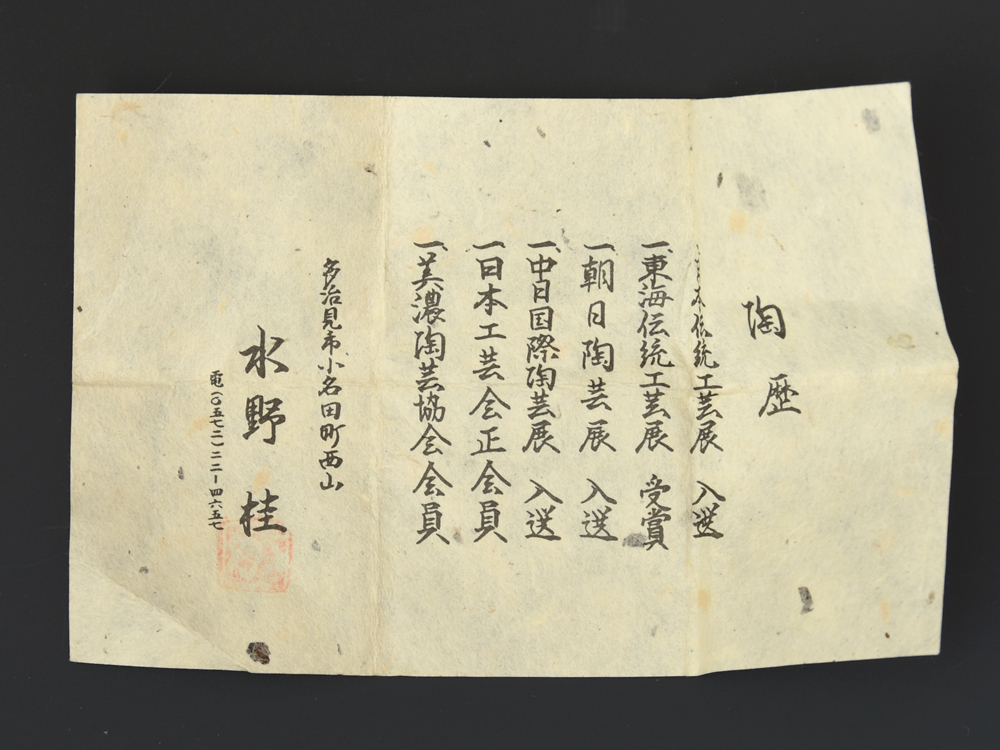 陶歴
本伝統工芸展 入選
一、東海伝統工芸展 受賞
一、朝日陶芸展 入選
一、中日国際陶芸展 入選
一、日本工芸会正会員
一、美濃陶芸協会会員
多治見市小名田町西山
水野 桂
電(〇五七二)二二ー四六五七